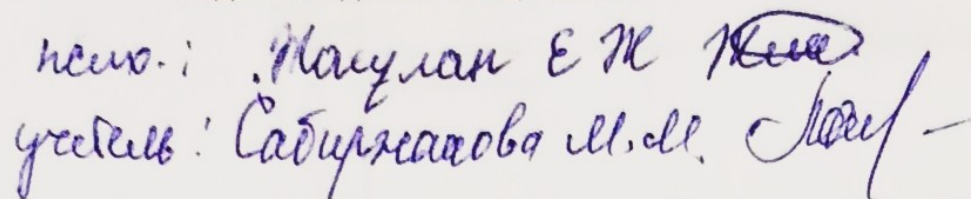 псих.: Жақулан Е Ж
учитель: Сабиржанова М.М.